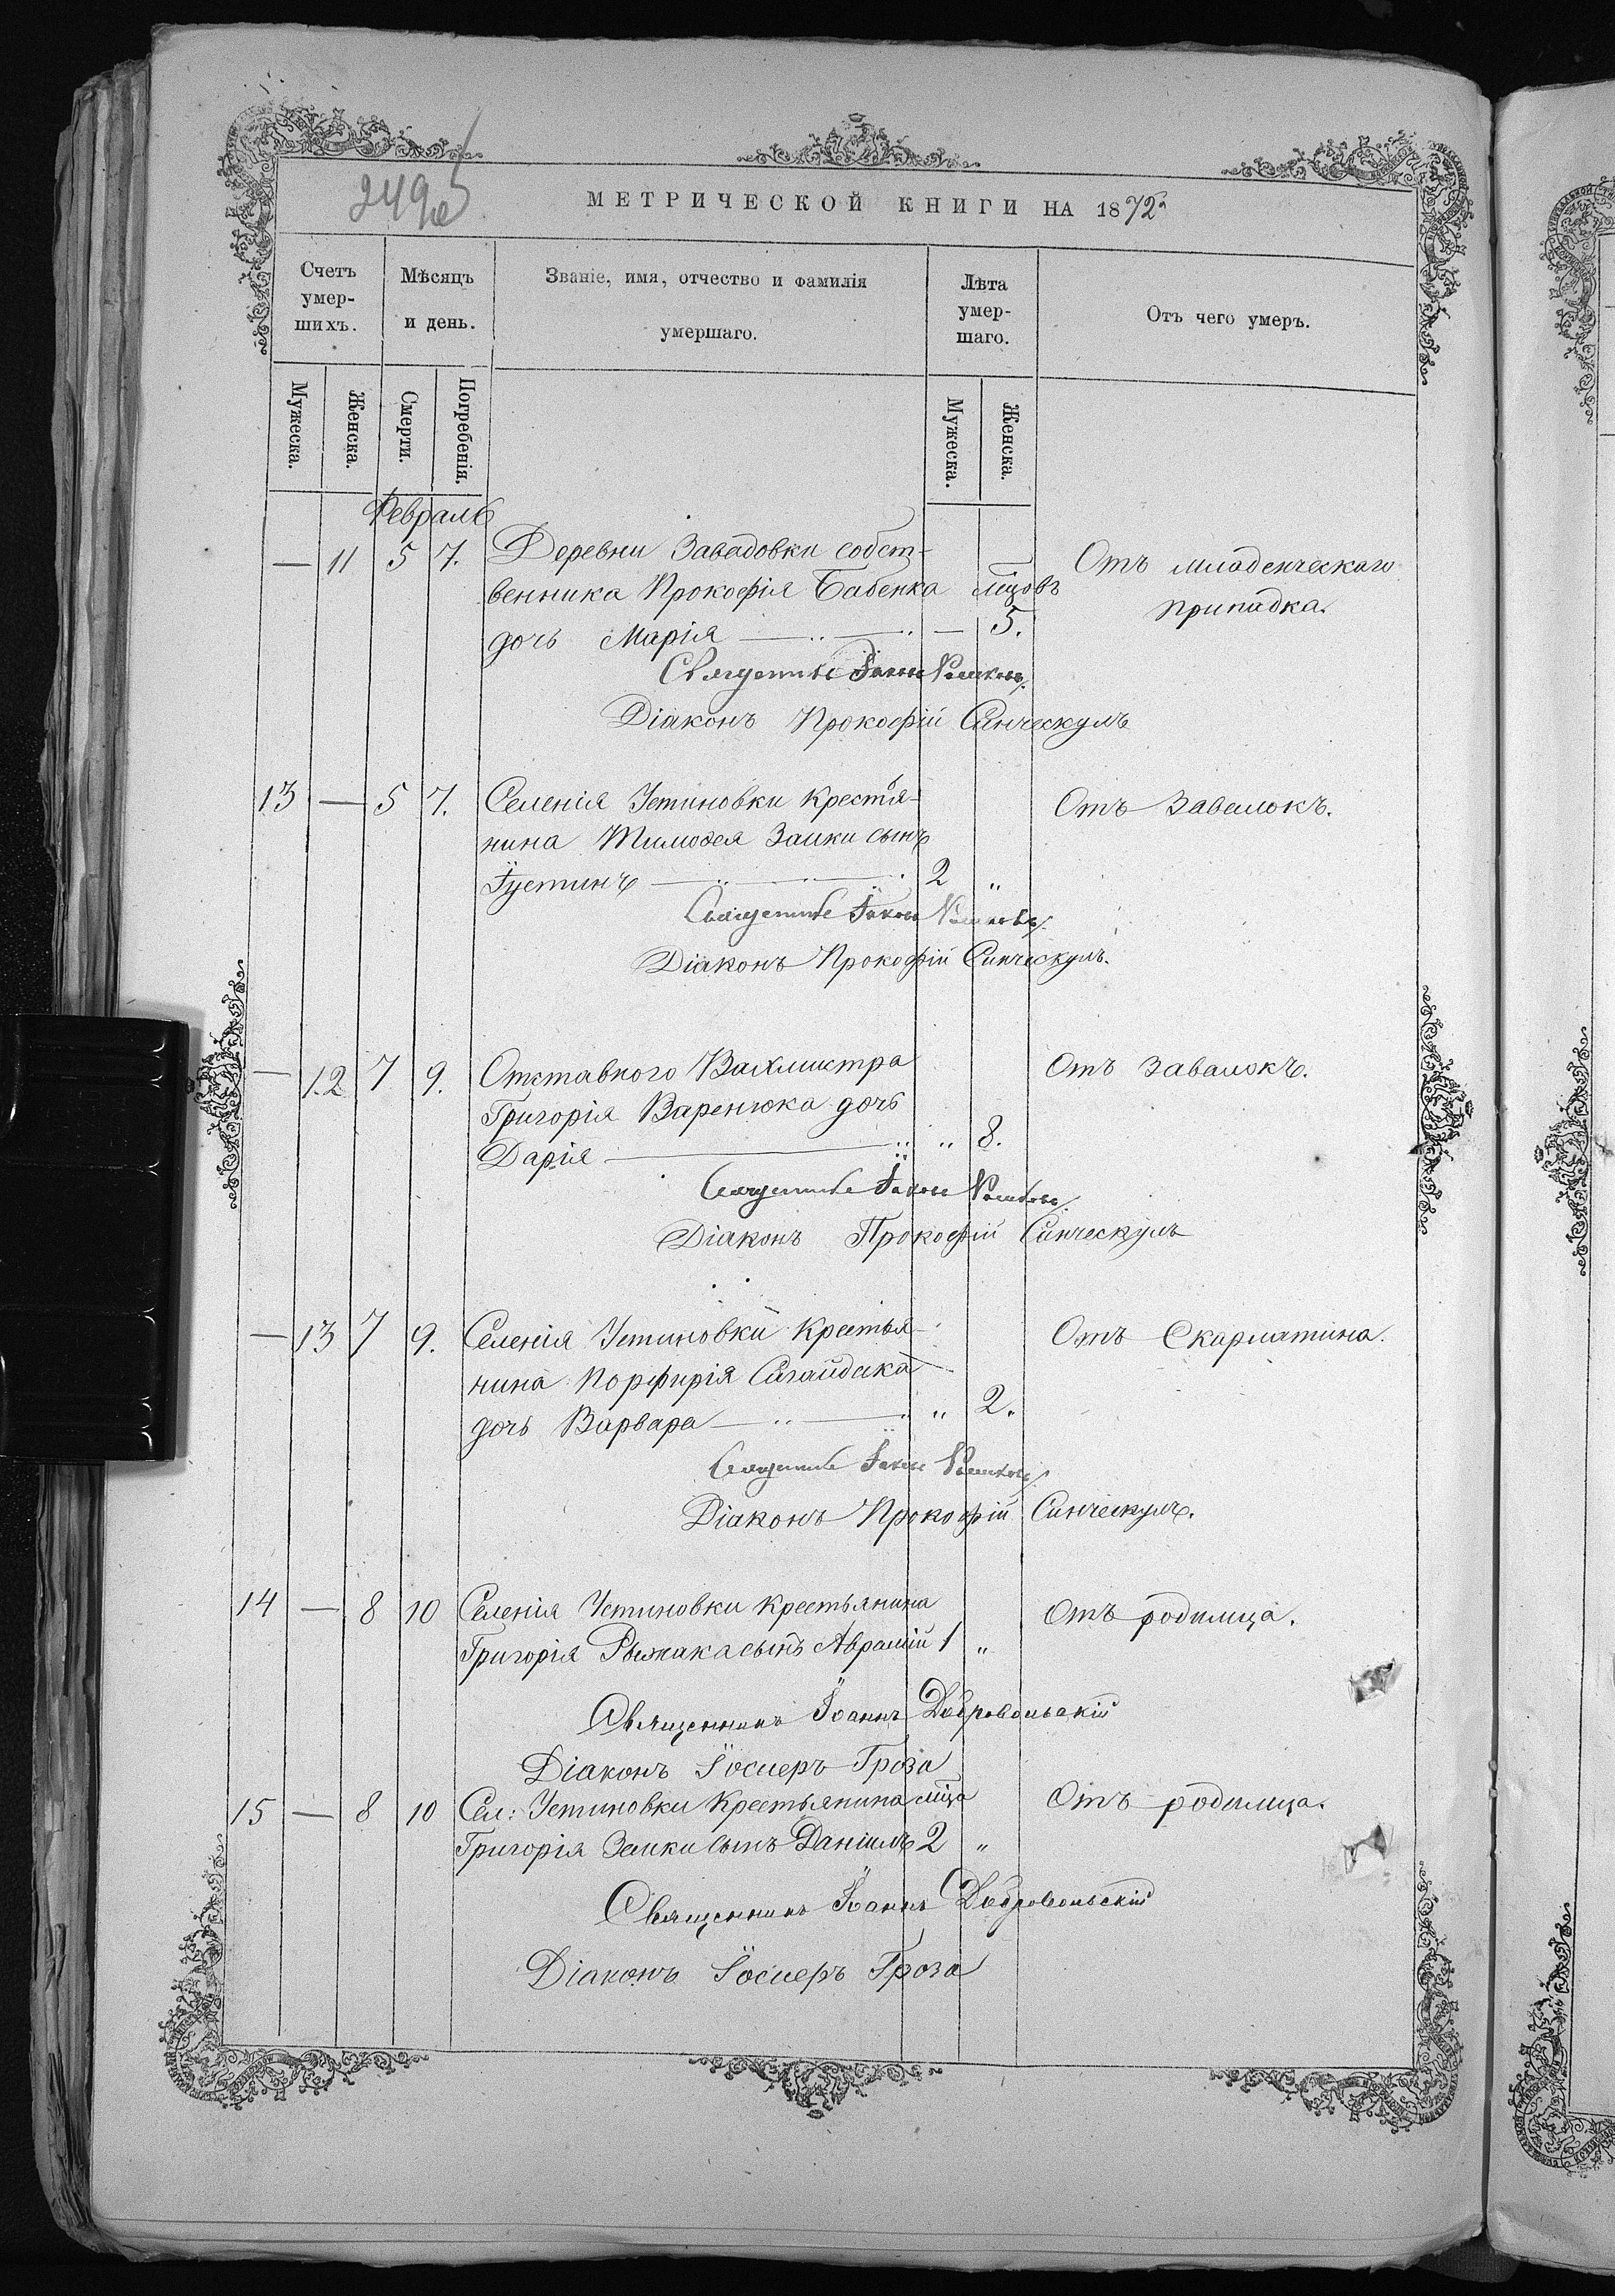 МЕТРИЧЕСКОЙ КНИГИ НА 1872
Счетъ умер-шихъ.
Мѣсяцъ и день.
Званіе, имя, отчество и фамилія умершаго.
Лѣта умер-шаго.
Отъ чего умеръ.
Мужеска.
Женска.
Смерти.
Погребенія.
Мужеска.
Женска.
Февраль
— 11 5 7. Деревни Завадовки собст- Отъ младенческаго
венника Прокофія Бабенка мцовъ припадка.
дочь Марія — 5.
Діаконъ Прокофій Синческулъ
13 — 5 7. Селенія Устиновки крестья- Отъ Завалокъ.
нина Тимоѳея Заики сынъ
Іустинъ 2 „
Діаконъ Прокофій Синческулъ.
— 12 7 9. Отставного Вахмистра Отъ завалокъ.
Григорія Варенюка дочь
Дарія „ 8.
Діаконъ Прокофій Синческулъ
— 13 7 9. Селенія Устиновки крестья- Отъ Скарлатина.
нина Порфирія Сагайдака
дочь Варвара „ 2.
Діаконъ Прокофій Синческулъ.
14 — 8 10 Селенія Устиновки крестьянина Отъ родимца.
Григорія Рыжака сынъ Аврамій 1 „
Священникъ Іоаннъ Добровольскій
Діаконъ Іосифъ Гроза
15 — 8 10 Сел: Устиновки крестьянина мца Отъ родимца.
Григорія Заики сынъ Даніилъ 2 „
Священникъ Іоаннъ Добровольскій
Діаконъ Іосифъ Гроза